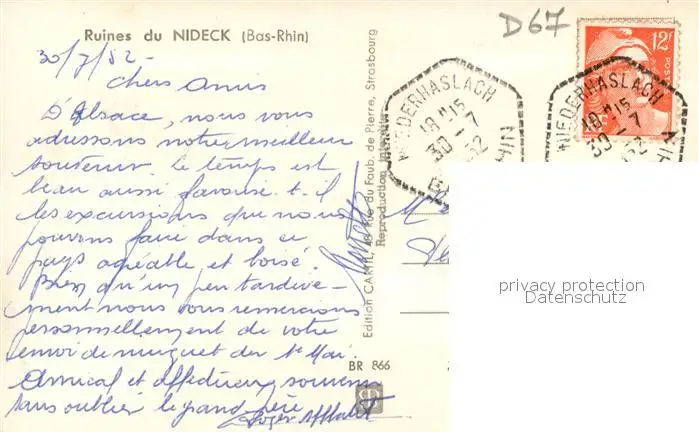 Ruines du NIDECK (Bas-Rhin)
D67
12F
30/7/52 -
chers Amis
D'Alsace, nous vous
adressons notre meilleur
souvenir. Le temps est
beau aussi favorise-t-il
les excursions que nous
pouvons faire dans ce
pays agréable et boisé.
Bien qu'un peu tardive-
ment nous vous remercions
personnellement de votre
envoi de muguet du 1er Mai.
Amical et affectueux souvenir
sans oublier le grand père
Roger
NIEDERHASLACH
18 H 15
30-7
52
RHIN
NIEDERHASLACH
18 H 15
30-7
52
Edition CARTIL, Rue du Faub. de Pierre, Strasbourg
Reproduction interdite
BR 866
privacy protection
Datenschutz